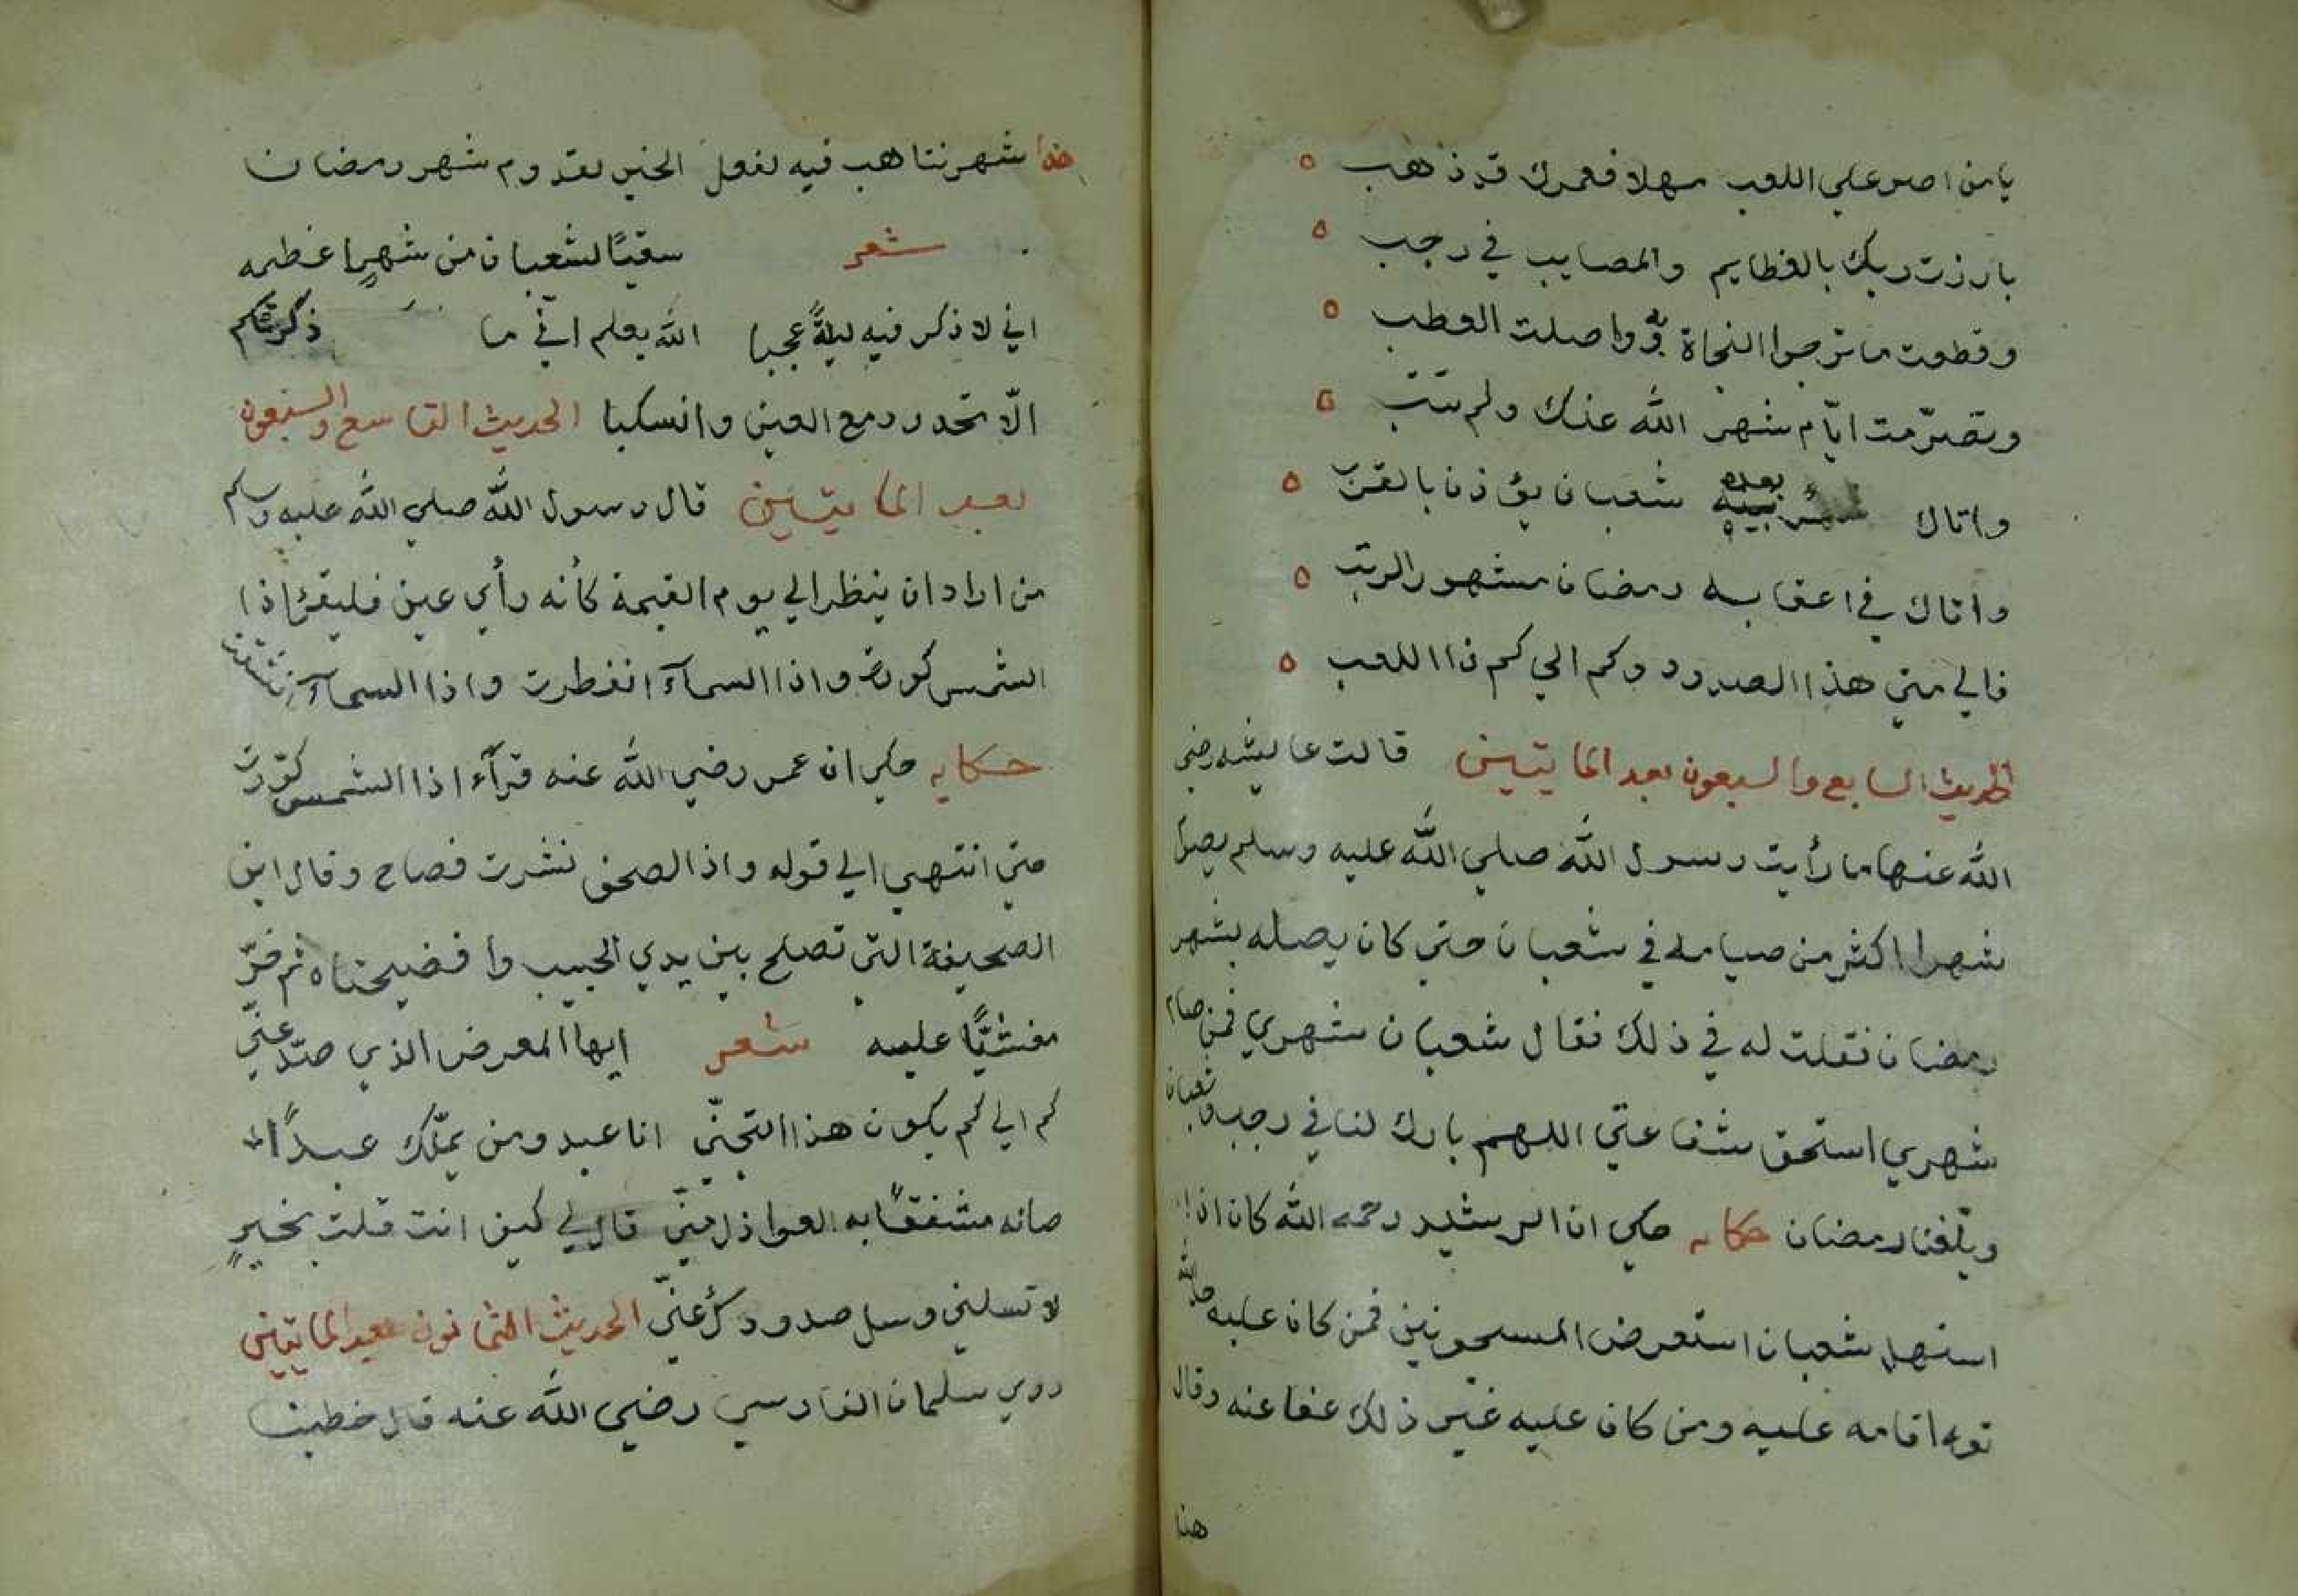 يا من اصر علي اللعب مهلا فعمرك قد ذهب
بارزت ربك بالفظايم والمصايب في رجب
وقطعت ما ترجوا النجاة به وواصلت العطب
وتصرّمت ايّام شهر الله عنك ولم تتب
واتاك بعده شعبان يؤذن بالقرب
واتاك في اعقابه رمضان مشهور الرتب
فالي متي هذا الصدود وكم الي كم ذا اللعب
الحديث السابع والسبعون بعد المايتين قالت عايشه رضي
الله عنها ما رأيت رسول الله صلي الله عليه وسلم يصوم
شهرا اكثر من صيامه في شعبان حتي كان يصله بشهر
رمضان فقلت له في ذلك فقال شعبان شهري فمن صام
شهري استحق شفاعتي اللهم بارك لنا في رجب وشعبان
وبلّغنا رمضان حكايه حكي ان الرشيد رحمه الله كان اذا
استهل شعبان استعرض المسجونين فمن كان عليه حد الله
توه اقامه عليه ومن كان عليه غير ذلك عفا عنه وقال
هذا
هذا شهر نتاهب فيه لفعل الخير لقدوم شهر رمضان
شعر سقيًا لشعبان من شهرٍ اعظمه
اني لاذكر فيه ليلةً عجبا الله يعلم اني ما ذكرتكم
الّا تحدر دمع العين وانسكبا الحديث التاسع والسبعون
بعد المايتين قال رسول الله صلي الله عليه وسلم
من اراد ان ينظر الي يوم القيمة كأنه رأي عين فليقرا اذا
الشمس كورت واذا السمآء انفطرت واذا السمآء انشقت
حكايه حكي ان عمر رضي الله عنه قرآء اذا الشمس كوّرت
حتي انتهي الي قوله واذا الصحف نشرت فصاح وقال اين
الصحيفة التي تصلح بين يدي الحبيب وا فضيحتاه ثم خرّ
مغشيًّا عليه شعر ايها المعرض الذي صدّ عنّي
كم الي كم يكون هذا التجنّي انا عبد ومن يملّك عبدًا
صانه مشفقًا به العواذل منّي قال لي كيف انت قلت بخيرٍ
لا تسلني وسل صدودكُ عنّي الحديث الثمانون بعد المايتين
روي سلمان الفارسي رضي الله عنه قال خطبنا